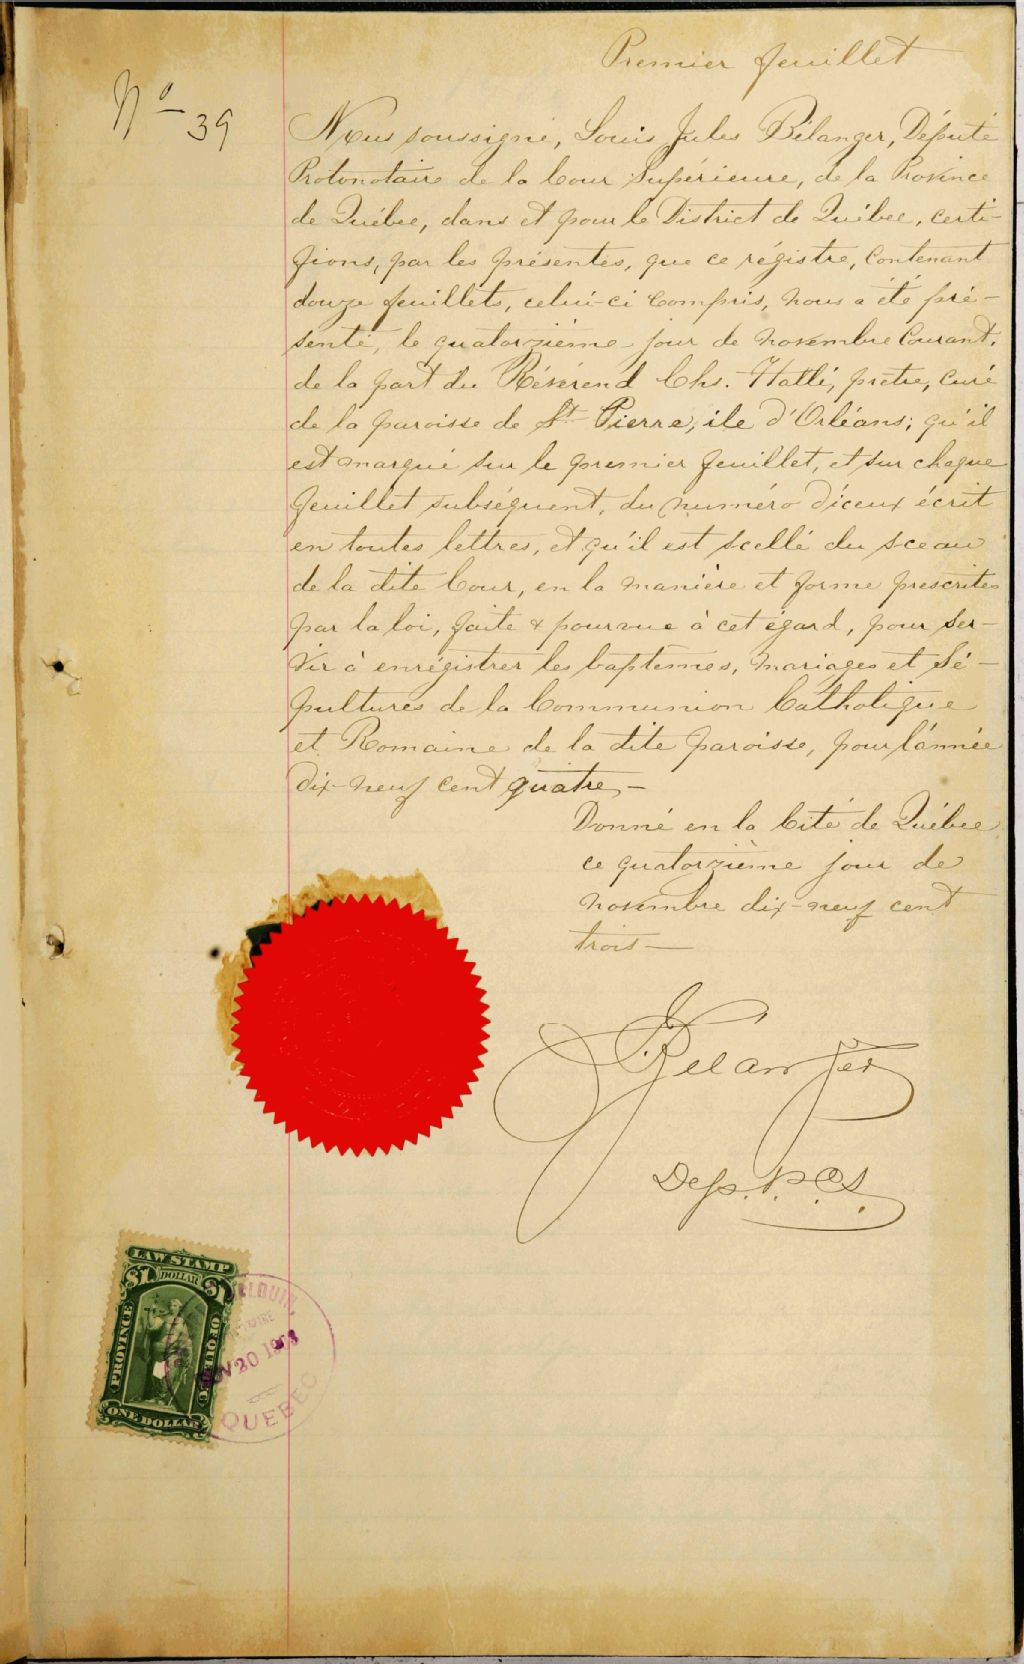 Premier feuillet
No 39
Nous soussigné, Louis Jules Bélanger, Député
Protonotaire de la Cour Supérieure, de la Province
de Québec, dans et pour le District de Québec, certi-
fions, par les présentes, que ce régistre, Contenant
douze feuillets, celui-ci Compris, nous a été pré-
senté, le quatorzième jour de novembre Courant,
de la part du Révérend Chs. Hallé, prêtre, curé
de la paroisse de St Pierre, ile d'Orléans; qu'il
est marqué sur le premier feuillet, et sur chaque
feuillet subséquent, du numéro d'iceux écrit
en toutes lettres, et qu'il est scellé du sceau
de la dite Cour, en la manière et forme prescrites
par la loi, faite & pourvue à cet égard, pour ser-
vir à enrégistrer les baptêmes, mariages et Sé-
pultures de la Communion Catholique
et Romaine de la dite paroisse, pour l'année
dix-neuf cent quatre,-
Donné en la Cité de Québec
ce quatorzième jour de
novembre dix-neuf cent
trois-
Belanger
Dep. P.C.S.
LAW STAMP
$1 DOLLAR $1
PROVINCE OF QUEBEC
ONE DOLLAR
NOV 20 1903
QUEBEC